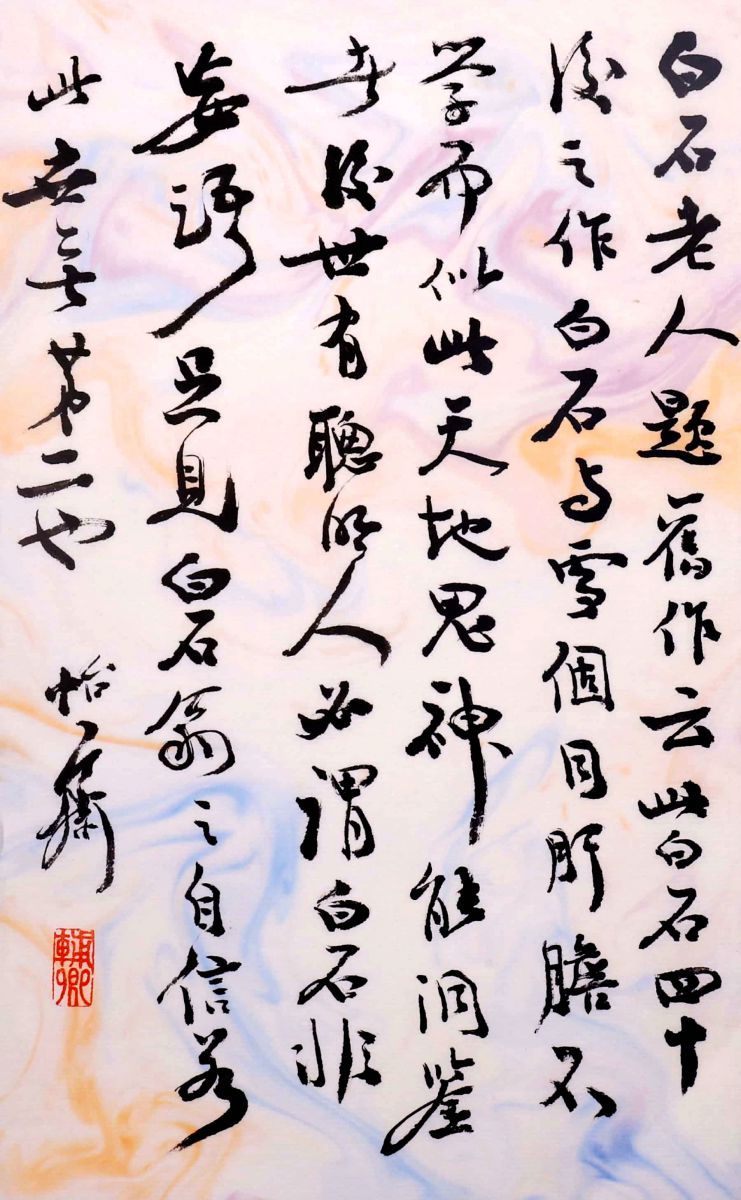 白石老人題舊作云此白石四十
後之作白石与雪個同肝膽不
学而似此天地鬼神能洞鉴
者後世有聰明人必謂白石非
妄語足見白石翁之自信若
此 第二也
怡齋
輔卿